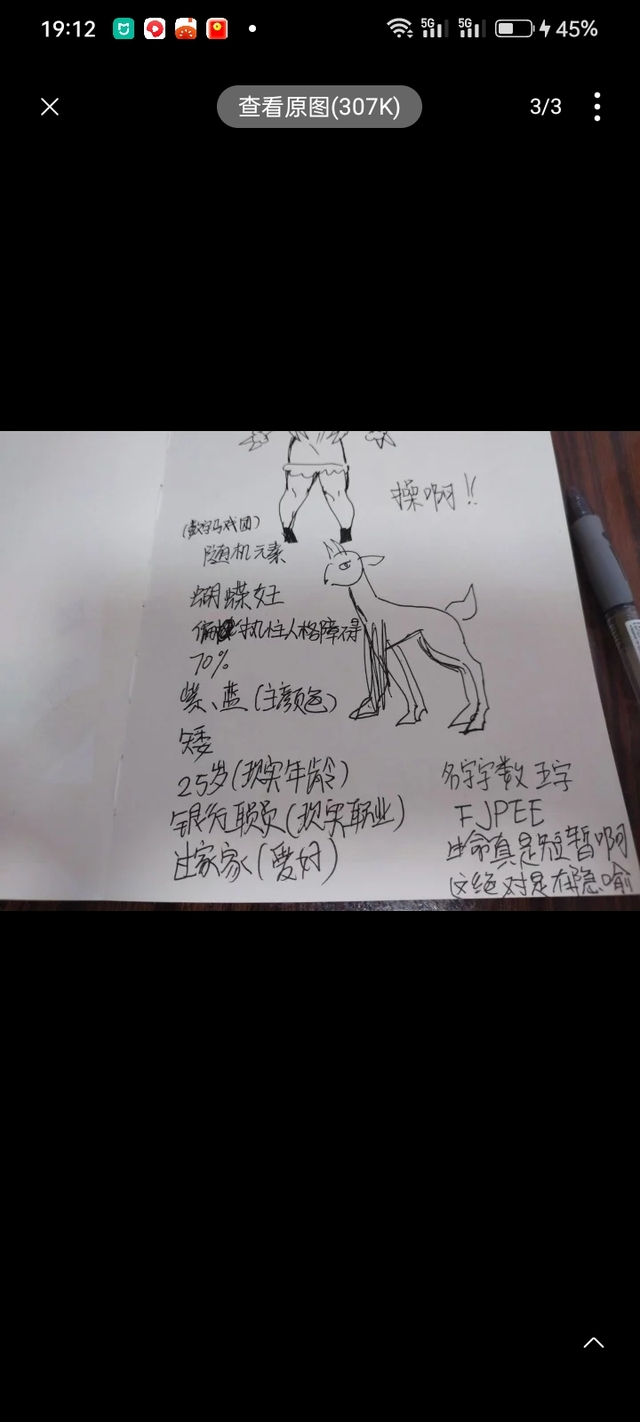 19:12
5G
5G
45%
查看原图(307K)
3/3
操啊!!
(数字马戏团)
随机元素
蝴蝶妇
偏执性人格障碍
70%
紫、蓝(主颜色)
矮
25岁(现实年龄)
银行职员(现实职业)
过家家(爱好)
名字字数 五字
FJPEE
生命真是短暂啊
这绝对是在隐喻